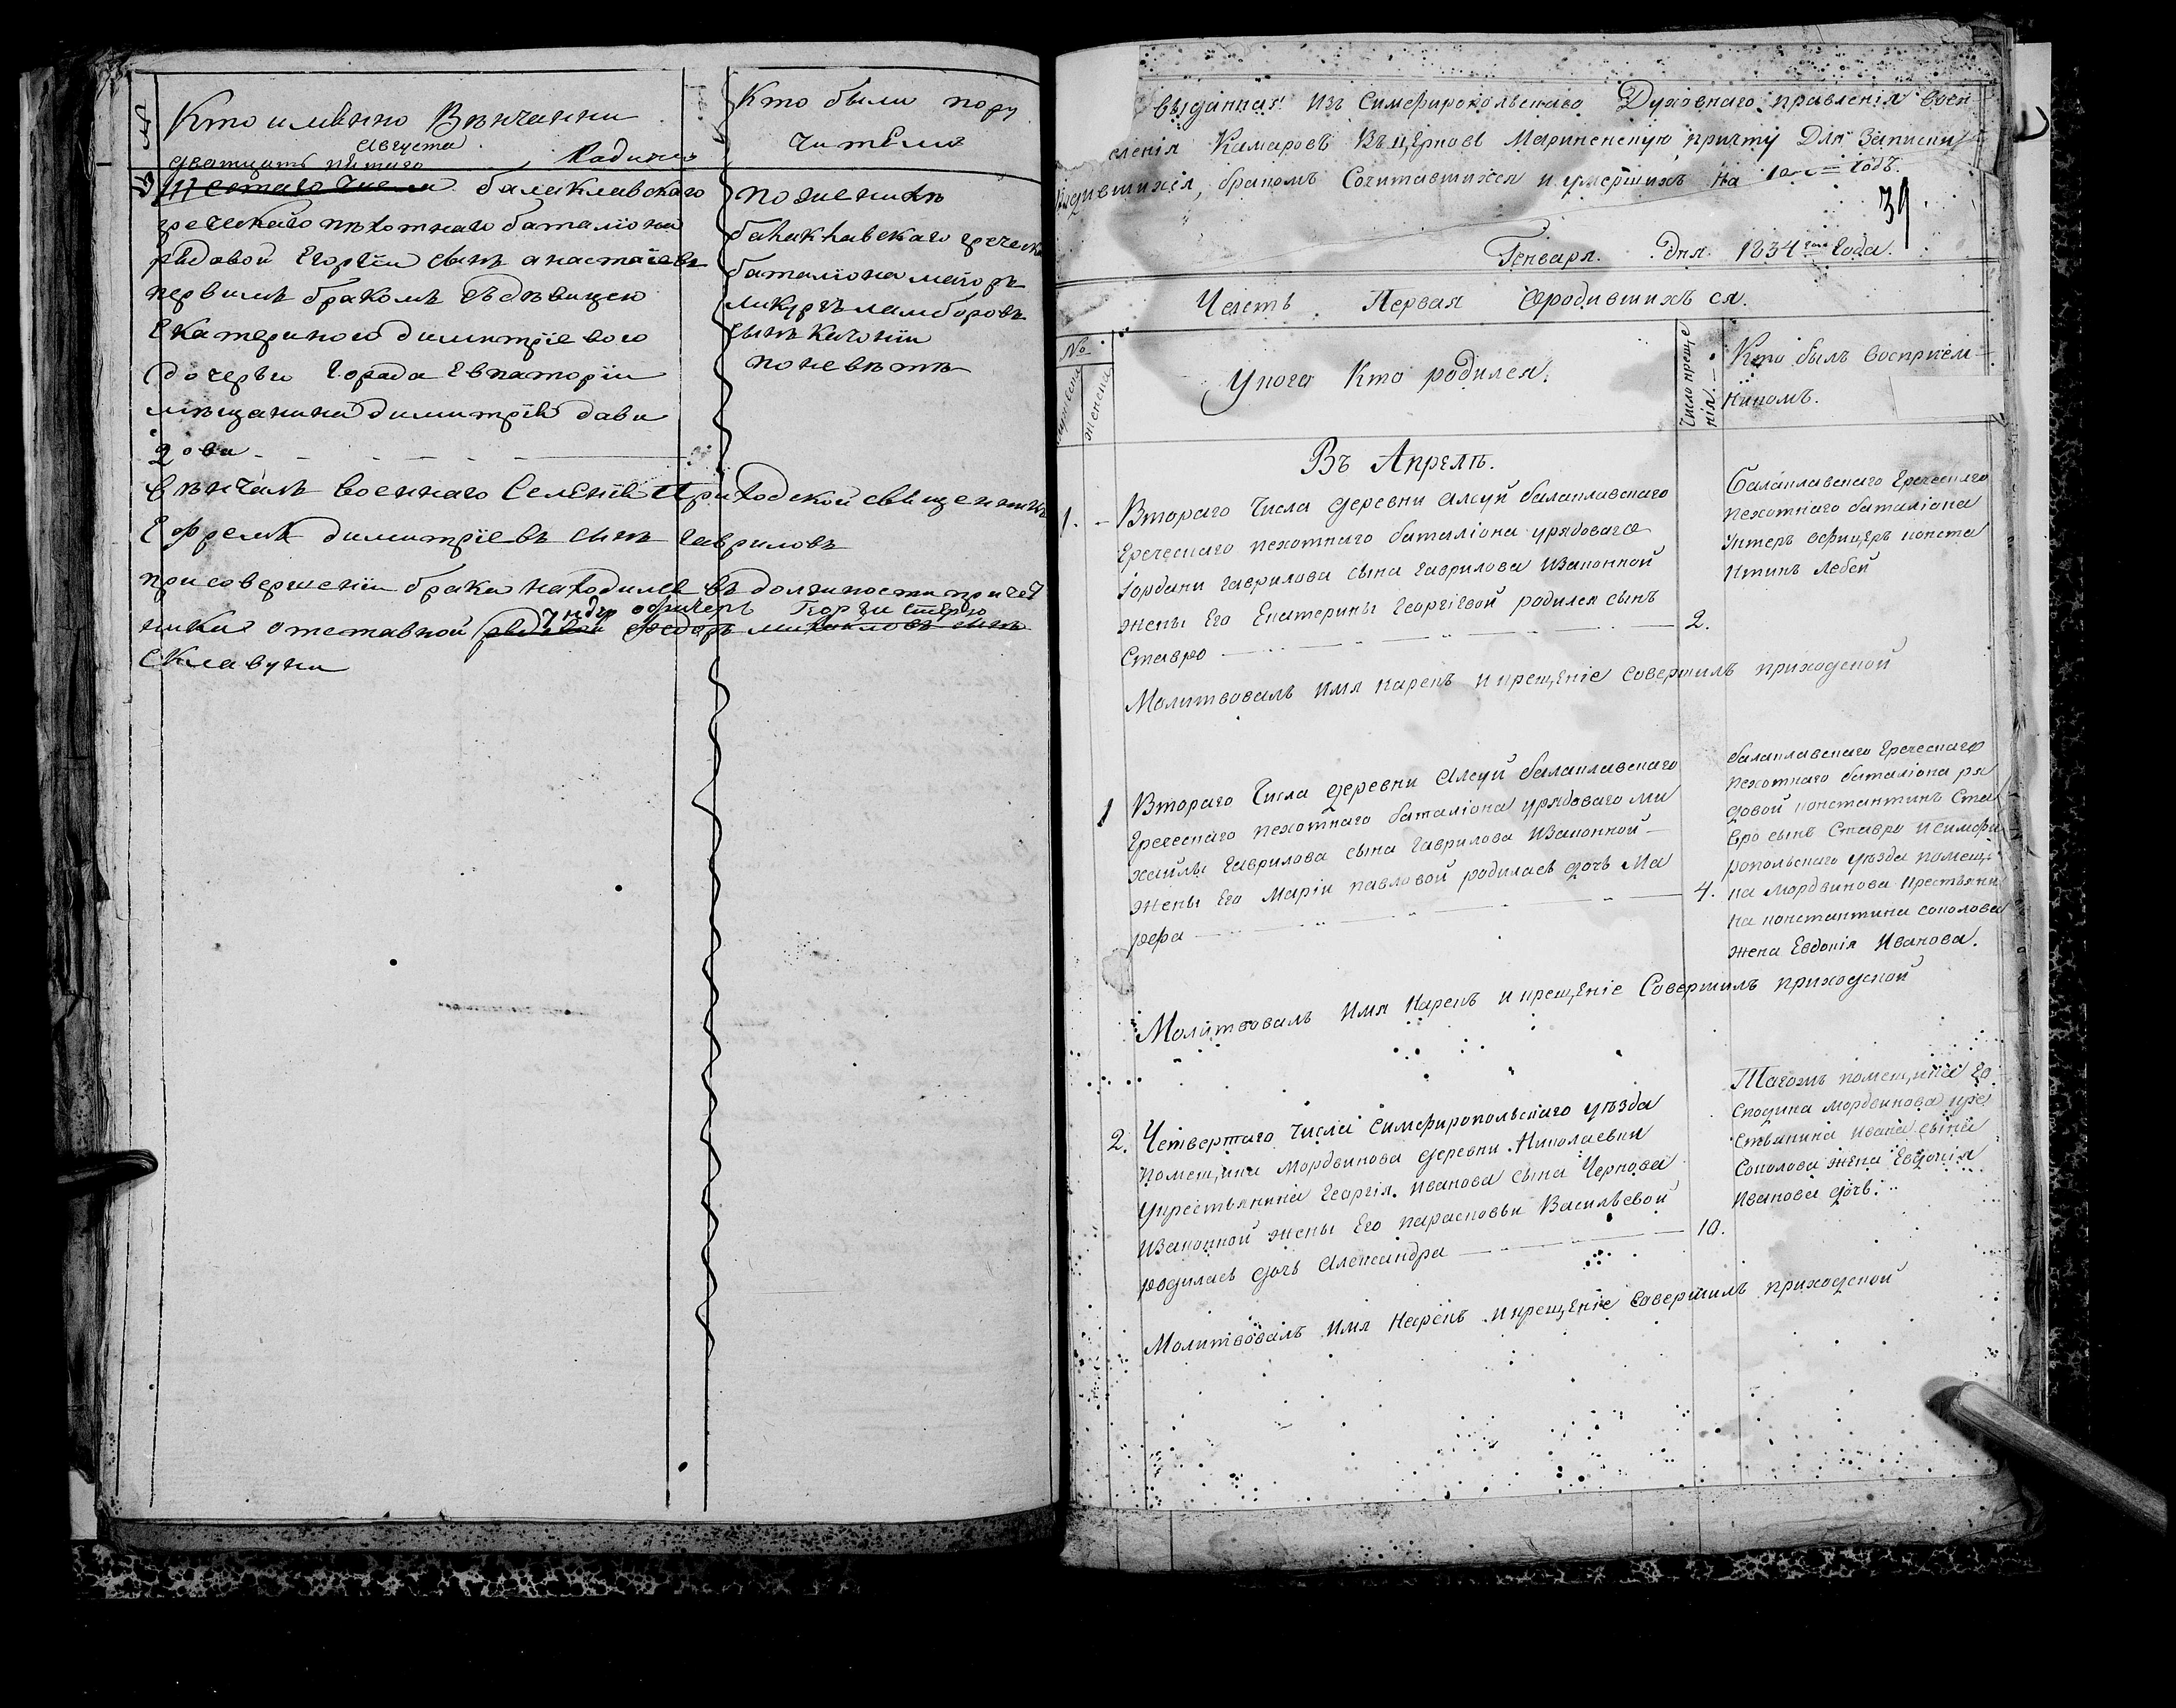 Кто имянно Венчанни
Августа
дватцать пятаго Кадикоі
Шестаго числа балаклавского
греческаго пѣхотнаго баталіона
рядовой Егоргій сынъ анастасіевъ
первымъ бракомъ съ дѣвицею
Екатериною димитріевою
дочерью Города Евпаторіи
мѣщанина димитрія дави
дова
вѣнчалъ военнаго Селенія Приходской священникъ
Ефремъ димитріевъ сынъ гавриловъ
при совершеніи брака находился въ должности причет
унтер офицеръ Георгій
ника отставной рядовой федоръ михаиловъ сынъ
Склавуни
Кто были пору
чители
по женихѣ
балаклавскаго греческ
баталіона маіоръ
ликургъ ламбровъ
сынъ качіони
по невѣстѣ
выданная изъ Симферопольскаго Духовнаго правленія воен
селенія Камаровъ Въ церковь Мариненскую причту Для Записки
родившихся, бракомъ Сочитавшихся и умершихъ на годъ.
39
Генваря. Дня 1834 года.
Честь Первая Ѡродившихъ ся.
№
женска
Укого Кто родился.
Число креще
нія.
Кто былъ восприем
никомъ.
Въ Апрелѣ.
1. - Втораго Числа деревни Алсуй балаклавскаго
Греческаго пехотнаго баталіона урядоваго
Іордани гаврилова сына гаврилова Изаконной
жены Его Екатерины Георгіевой родился сынъ
Ставро 2.
Балаклавскаго Греческаго
пехотнаго баталіона
Унтеръ офицеръ конста
нтинъ Лебей
Молитвовалъ имя нареκъ и крещеніе совершилъ приходской
1 Втораго Числа деревни Алсуй балаклавскаго
Греческаго пехотнаго баталіона урядоваго ми
хайлы гаврилова сына гаврилова Изаконной
жены Его Маріи павловой родилась дочь Ма
рфа 4.
балаклавскаго Греческаго
пехотнаго баталіона ря
довой константинъ Ста
вро сынъ Ставри и симфе
ропольскаго уѣзда помещи
ка мордвинова крестьяни
на константина соколова
жена Евдокія Иванова.
Молитвовалъ имя нарекъ и крещеніе Совершилъ приходской
2. Четвертаго числа симферопольскаго уѣзда
помещика мордвинова деревни Николаевки
укрестьянина Георгія Иванова сына Чернова
Изаконной жены Его парасковьи Васильевой
родилась дочь Александра 10.
Тагожъ помещика го
сподина мордвинова кре
стьянина ивана сына
Соколова жена Евдокія
Иванова дочь.
Молитвовалъ имя Нарекъ и крещеніе совершилъ приходской